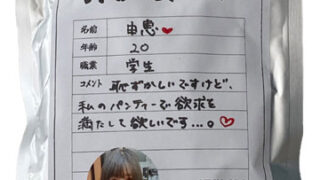 名前 由恵♥
年齢 20
職業 学生
コメント 恥ずかしいですけど、
私のパンティーで欲求を
満たして欲しいです...。♡